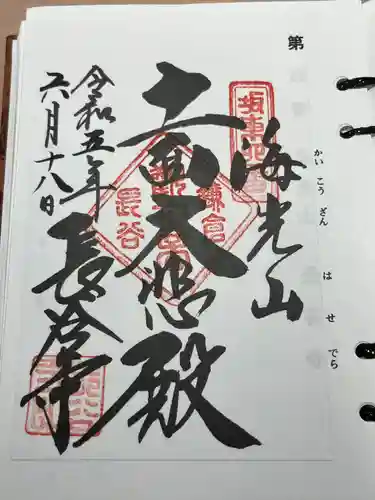 第
かいこうざん
はせでら
坂東四番
海光山
十一面大悲殿
鎌倉
長谷
令和五年
六月十八日
長谷寺